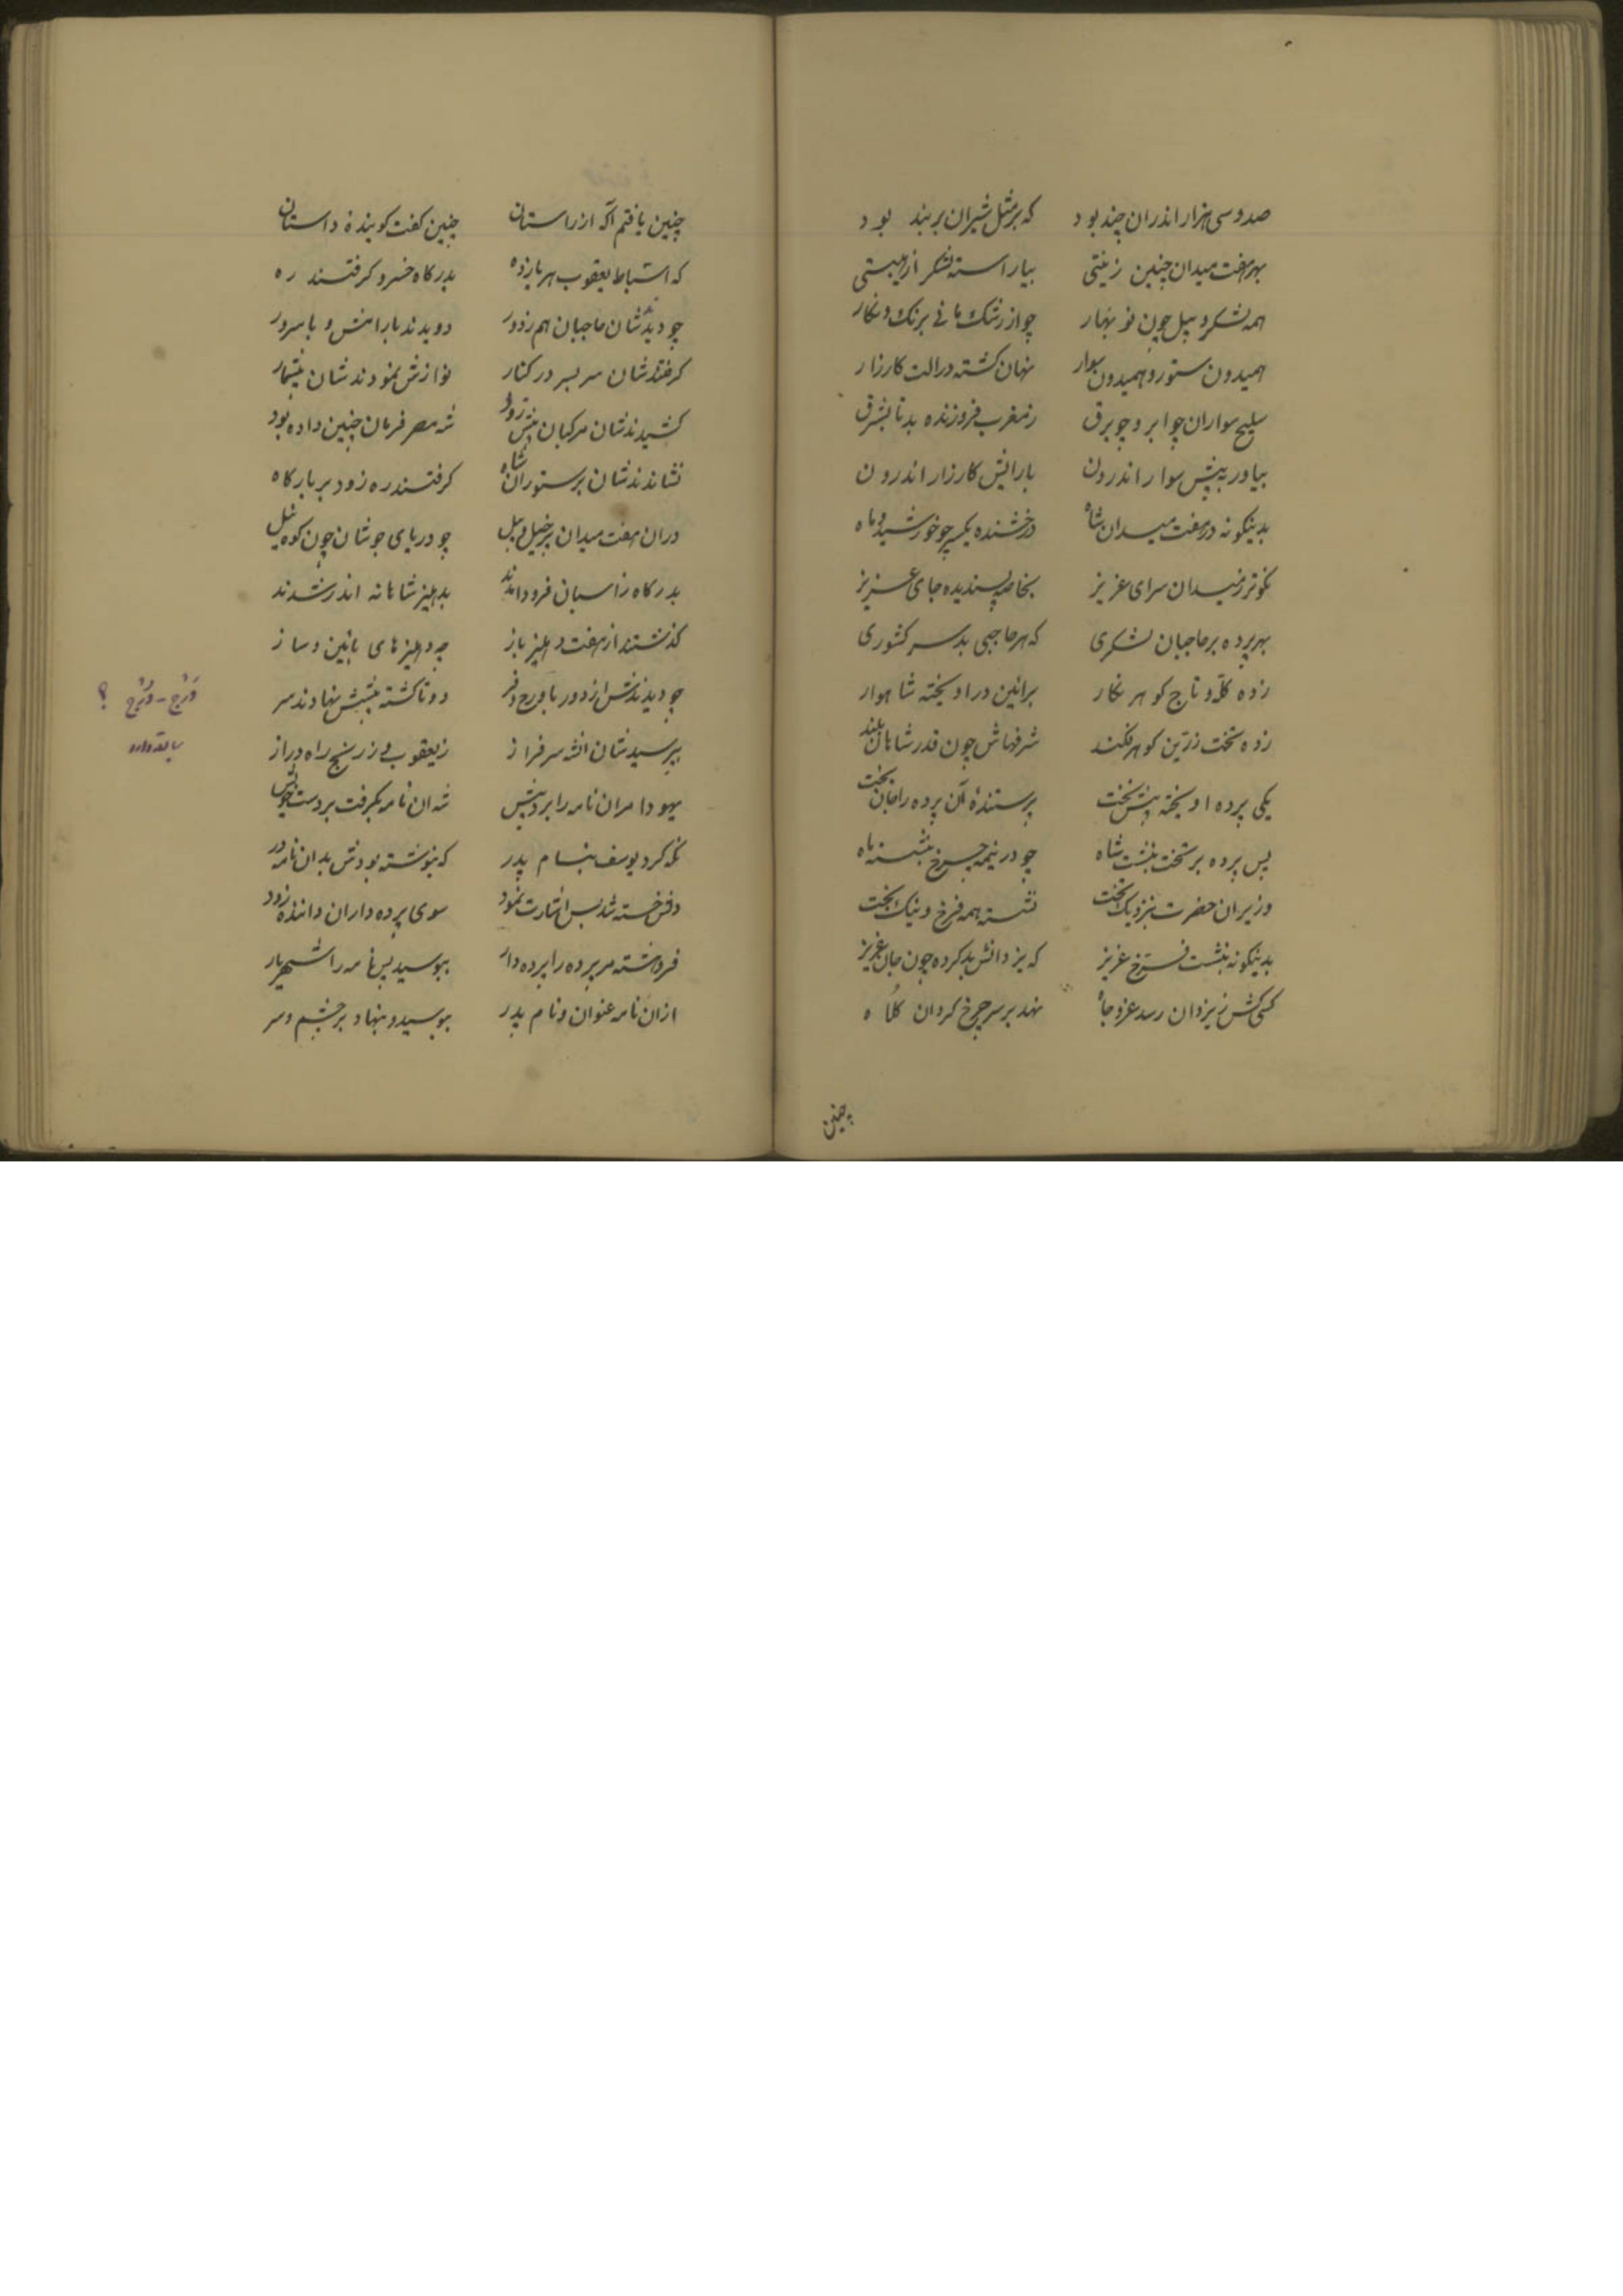 صد و سی هزار اندران چند بود که بر مثل شیران بر بند بود
بهر هفت میدان چنین زینتی بیاراسته لشکر از هیبتی
همه لشکر و پیل چون نو بهار چو از رشک مانی برنک و نکار
همیدون ستور و همیدون سوار نهان کشته در الت کارزار
سلیح سواران چو ابر و چو برق ز مغرب فروزنده بد تا بشرق
بیاور به پیش سوار اندرون بارایش کارزار اندرون
بدینکونه در هفت میدان شاه درخشنده یکسر چو خورشید و ماه
نکوتر ز میدان سرای عزیز بخاصه پسندیده جای عزیز
بهر پرده بر حاجبان لشکری که هر حاجبی بد سر کشوری
زده کله و تاج کوهر نکار بر ائین در اویخته شاهوار
زده تخت زرین کوهر فکند شرفهاش چون قدر شاهان بلند
یکی پرده اویخته پیش تخت پرستندهٔ آن پرده را جان بخت
پس پرده بر تخت بنشست شاه چو در نیمه چرخ بنشسته ماه
وزیران حضرت بنزدیک تخت نشسته همه فرخ و نیک بخت
بدینکونه بنشست فرخ عزیز که یزدانش بد کرده چون جان عزیز
کسی کش ز یزدان رسد عز و جاه نهد بر سر چرخ کردان کلاه
چنین
چنین یافتم آکه از راستان چنین کفت کویندهٔ داستان
که اسباط یعقوب هر یازده بدرکاه خسرو کرفتند ره
چو دیدندشان حاجبان هم ز دور دویدند با رامش و با سرور
کرفتندشان سر بسر در کنار نوازش نمودندشان بیشمار
کشیدندشان مرکبان پیش زود شه مصر فرمان چنین داده بود
نشاندندشان بر ستوران شاه کرفتند ره زود بر بارکاه
دران هفت میدان پر خیل و پیل چو دریای جوشان چون کوه نیل
بدرکاه ز اسبان فرود امدند بدهلیز شاهانه اندر شدند
کذشتند از هفت دهلیز باز چه دهلیزهای بائین و ساز
چو دیدندش از دور با ورج و فر دوتا کشته پیشش نهادند سر
بپرسیدشان انشه سرفراز ز یعقوب وز رنج راه دراز
یهودا مران نامه را برد پیش شه ان نامه بکرفت بر دست خویش
نکه کرد یوسف بنام پدر که بنوشته بودش بدان نامه در
دلش خسته شد پس اشارت نمود سوی پرده داران داننده زود
فروهشته مر پرده را پرده دار ببوسید پس نامه را شهریار
ازان نامه عنوان و نام پدر ببوسید و بنهاد بر چشم و سر
وَرْج - وُرْج ؟